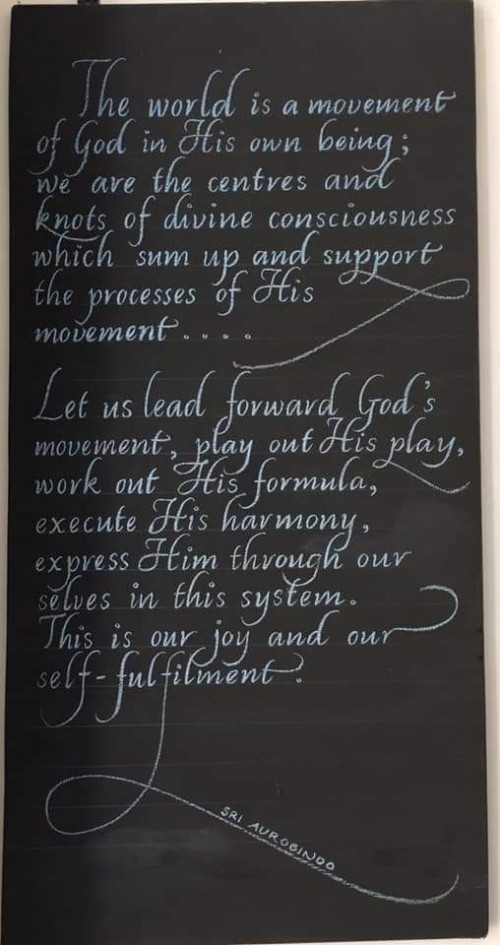 The world is a movement
of God in His own being;
we are the centres and
knots of divine consciousness
which sum up and support
the processes of His
movement....
Let us lead forward God's
movement, play out His play,
work out His formula,
execute His harmony,
express Him through our
selves in this system.
This is our joy and our
self-fulfilment.
SRI AUROBINDO